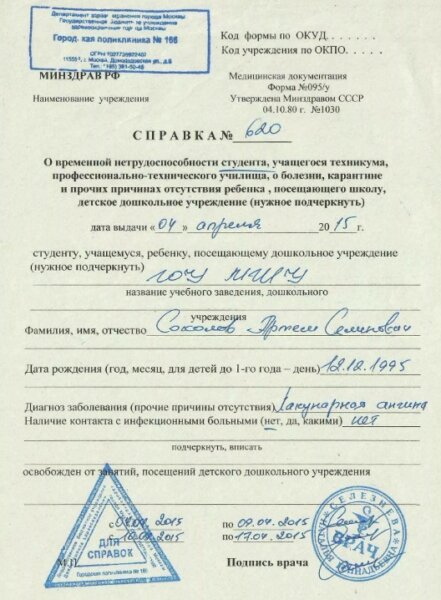 Департамент здравоохранения города Москвы
Государственное бюджетное учреждение
здравоохранения города Москвы
Город.кая поликлиника № 166
ОГРН 1027739922407
г. Москва, Домодедовская ул., д.9
Тел.: 391-50-46
Код формы по ОКУД. . . . . . .
Код учреждения по ОКПО. . . . .
МИНЗДРАВ РФ
Наименование учреждения
Медицинская документация
Форма №095/у
Утверждена Минздравом СССР
04.10.80 г. №1030
СПРАВКА № 620
О временной нетрудоспособности студента, учащегося техникума,
профессионально-технического училища, о болезни, карантине
и прочих причинах отсутствия ребенка , посещающего школу,
детское дошкольное учреждение (нужное подчеркнуть)
дата выдачи «04 » апреля 2015 г.
студенту, учащемуся, ребенку, посещающему дошкольное учреждение
(нужное подчеркнуть)
название учебного заведения, дошкольного
учреждения
Фамилия, имя, отчество Соколов Артем Семенович
Дата рождения (год, месяц, для детей до 1-го года – день) 12.12.1995
Диагноз заболевания (прочие причины отсутствия) Лакунарная ангина
Наличие контакта с инфекционными больными (нет, да, какими) нет
подчеркнуть, вписать
освобожден от занятий, посещений детского дошкольного учреждения
с 04.04.2015 по 09.04.2015
с 10.04.2015 по 17.04.2015
ДЛЯ
СПРАВОК
Городская поликлиника № 166
М.П.
Подпись врача
СЕЛЕЗНЕВА
ВРАЧ